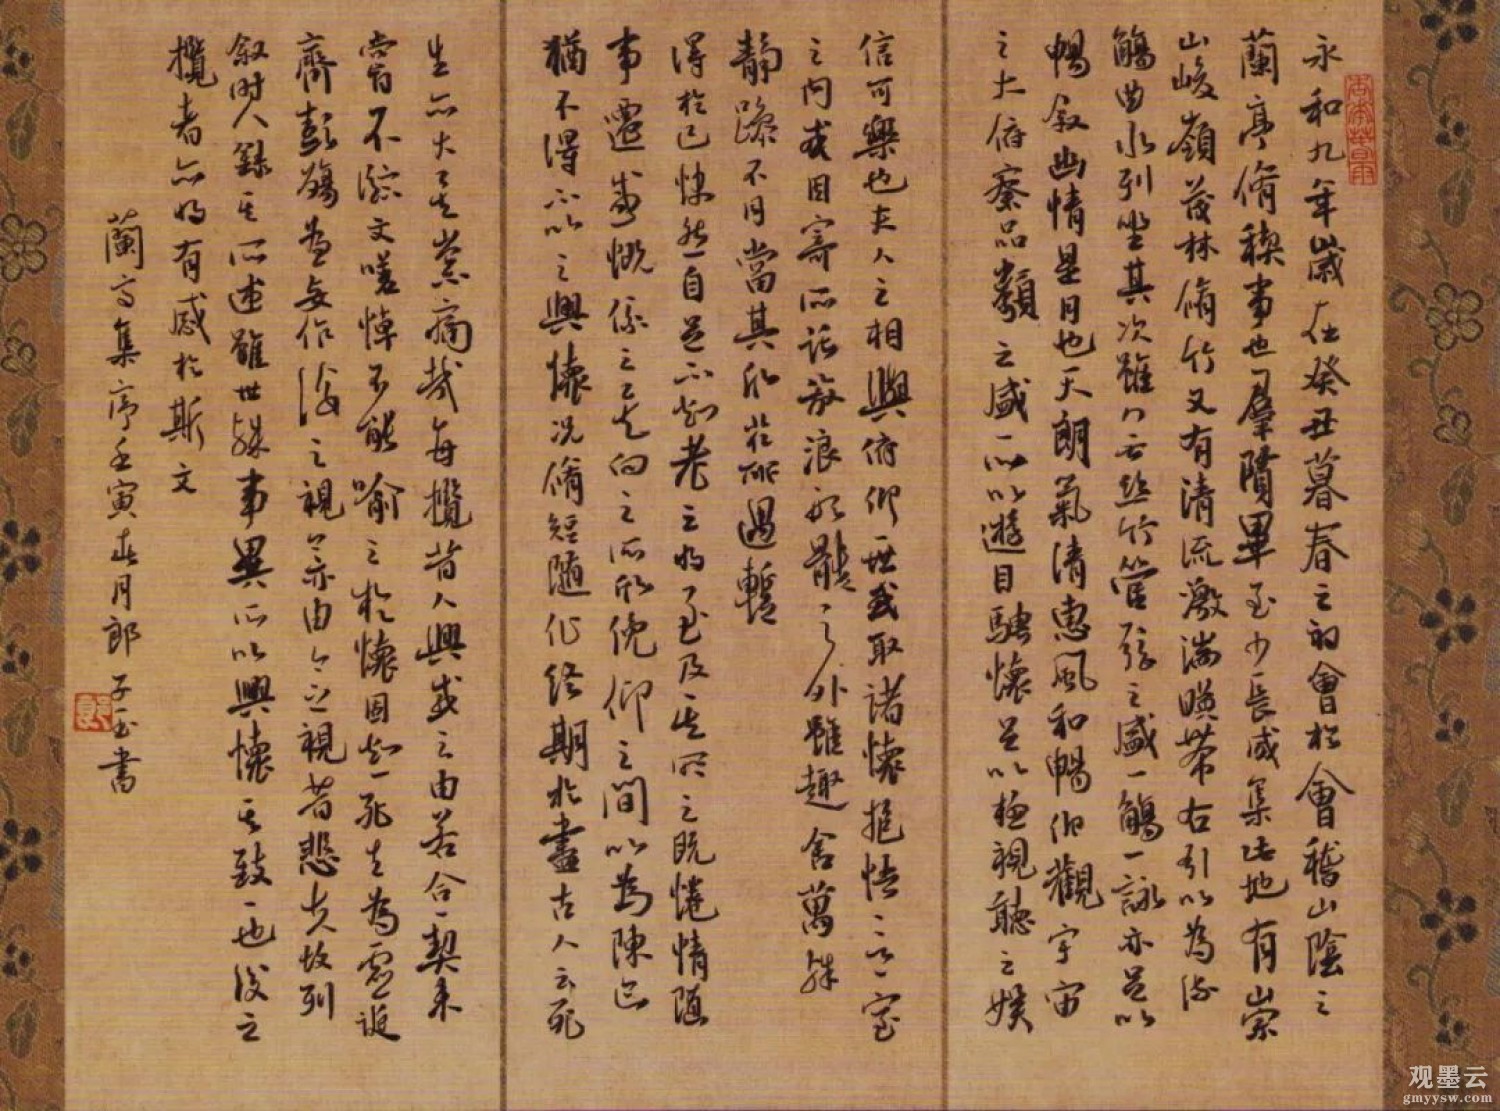 永和九年歲在癸丑暮春之初會於會稽山陰之
蘭亭脩稧事也羣賢畢至少長咸集此地有崇
山峻嶺茂林脩竹又有清流激湍暎帶右引以為流
觴曲水列坐其次雖無絲竹管弦之盛一觴一詠亦足以
暢敘幽情是日也天朗氣清惠風和暢仰觀宇宙
之大俯察品類之盛所以遊目騁懷足以極視聽之娛
信可樂也夫人之相與俯仰一世或取諸懷抱悟言一室
之內或因寄所託放浪形骸之外雖趣舍萬殊
靜躁不同當其欣於所遇暫
得於己怏然自足不知老之將至及其所之既惓情隨
事遷感慨係之矣向之所欣俛仰之間以為陳迹
猶不得不以之興懷況脩短隨化終期於盡古人云死
生亦大矣豈不痛哉每攬昔人興感之由若合一契未
嘗不臨文嗟悼不能喻之於懷固知一死生為虛誕
齊彭殤為妄作後之視今亦由今之視昔悲夫故列
敘時人錄其所述雖世殊事異所以興懷其致一也後之
攬者亦將有感於斯文
蘭亭集序壬寅春月郎子玉書
观墨云
gmyysw.com